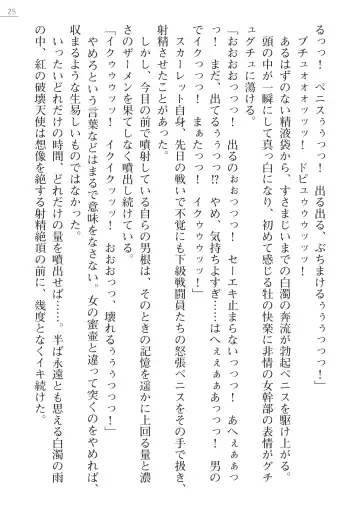 25
るっっ！　ペニスぅぅっっ！　出る出る、ぶちまけるぅぅぅっっっ！」
ブチュオオオッッッ！　ドビュウゥゥゥッッッ！
あるはずのない精液袋から、すさまじいまでの白濁の奔流が勃起ペニスを駆け上がる。
頭の中が一瞬にして真っ白になり、初めて感じる牡の快楽に非情の女幹部の表情がグチ
ュグチュに蕩ける。
「おおおおっっっ！　出るのぉぉっっっ！　セーエキ止まらないっっっ！　あへぇぁぁっ
っ！　まだ、出てるぅぅっっ!?　やめ、気持ちよすぎ……はへぇぇぁぁあっっっ！　男の
でイクっっっ！　まぁたっっ！　イクゥウゥッッ！」
スカーレット自身、先日の戦いで不覚にも下級戦闘員たちの怒張ペニスをその手で扱き、
射精させたことがあった。
しかし、今目の前で噴射している自らの男根は、そのときの記憶を遥かに上回る量と濃
さのザーメンを果てしなく噴出し続けている。
「イクゥウゥッッッ！　イクイクッッッ！　おおおっっ、壊れるぅぅぅぅっっっ！」
やめろという言葉などはまるで意味をなさない。女の蜜壺と違って突くのをやめれば、
収まるような生易しいものではなかった。
いったいどれだけの時間、どれだけの量を噴出せば……。半ば永遠とも思える白濁の雨
の中、紅の破壊天使は想像を絶する射精絶頂の前に、幾度となくイキ続けた。